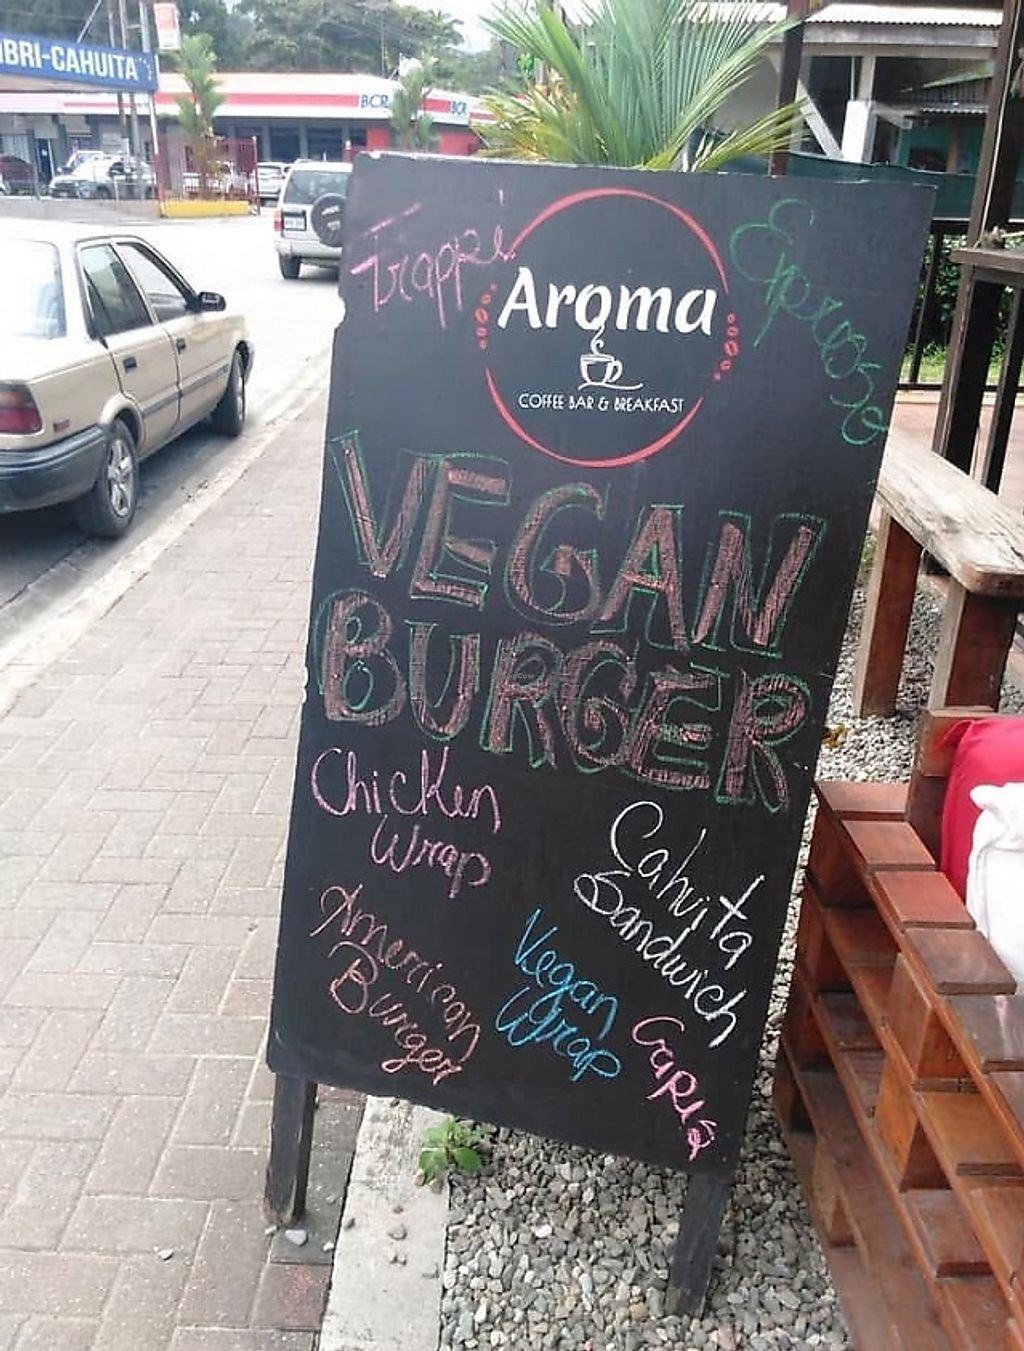 BRI-CAHUITA
BCR
BCR
Frappi
Aroma
COFFEE BAR & BREAKFAST
VEGAN
BURGER
Chicken
Wrap
Cahuita
Sandwich
American
Burger
Vegan
Wrap